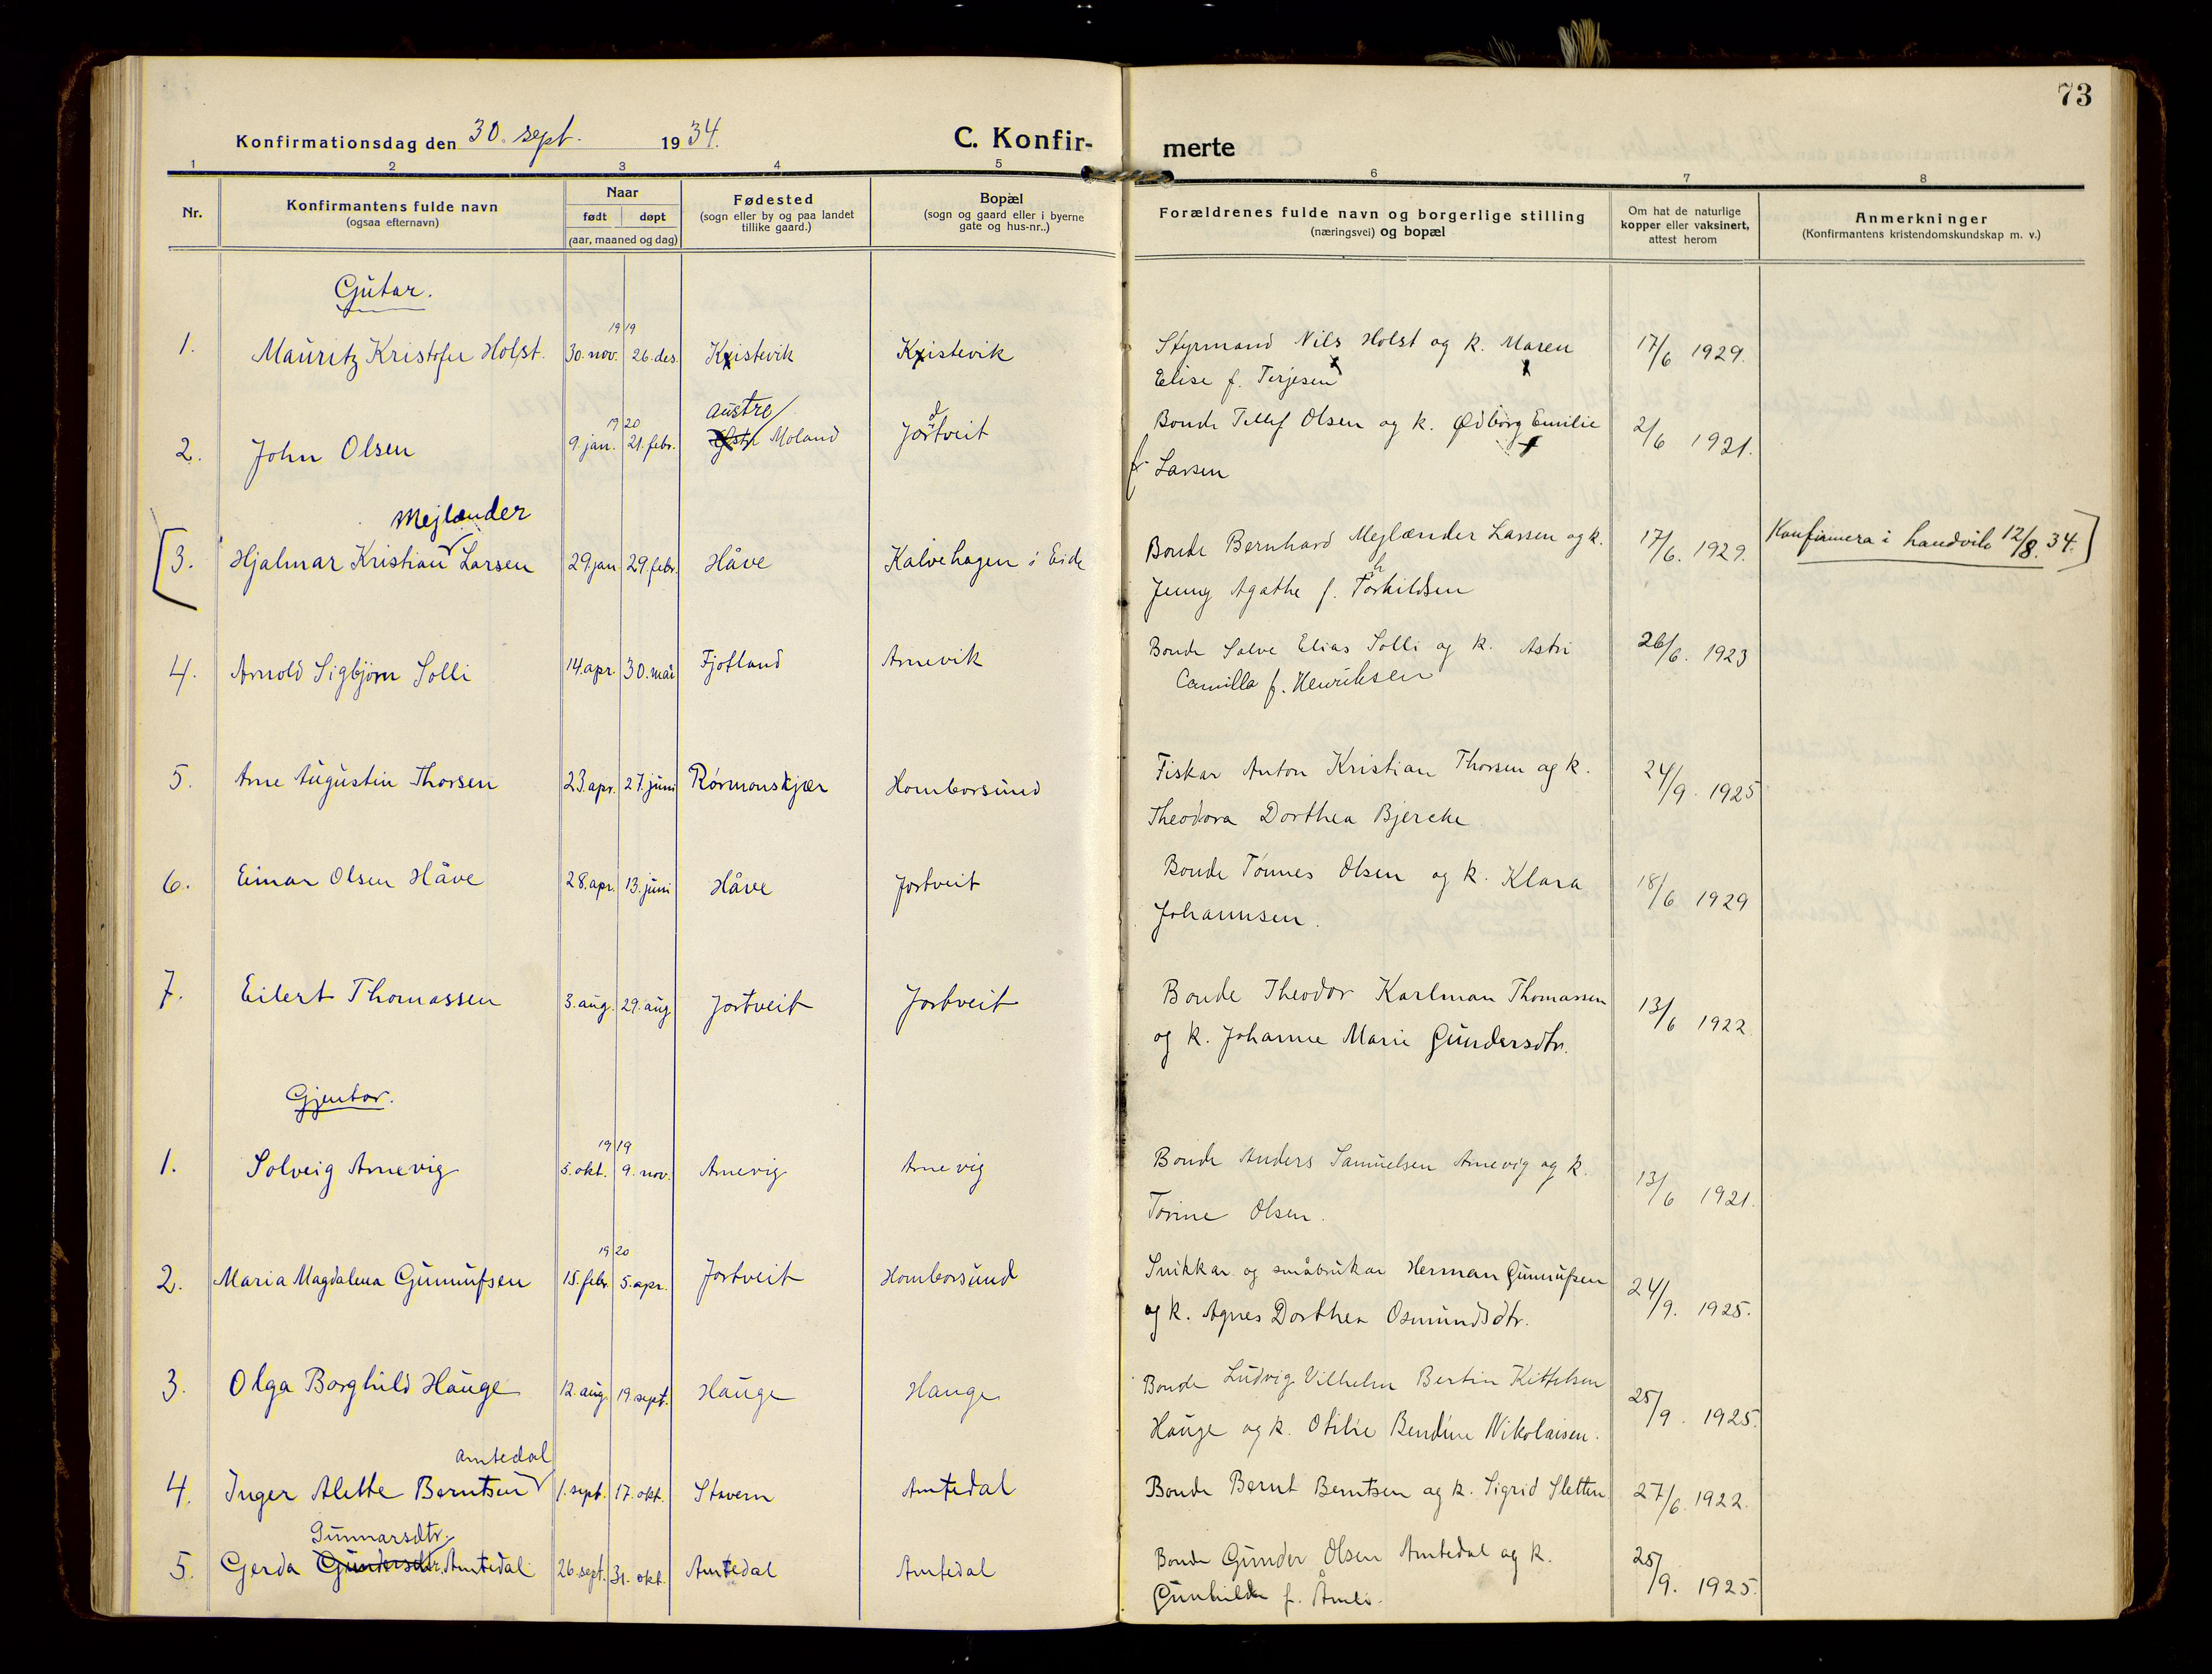 73
Konfirmationsdag den 30. sept. 1934.
C. Konfir-
merte
1 2 3 4 5 6 7 8
Nr.
Konfirmantens fulde navn
(ogsaa efternavn)
Naar
født døpt
(aar, maaned og dag)
Fødested
(sogn eller by og paa landet
tillike gaard.)
Bopæl
(sogn og gaard eller i byerne
gate og hus-nr..)
Forældrenes fulde navn og borgerlige stilling
(næringsvei) og bopæl
Om hat de naturlige
kopper eller vaksinert,
attest herom
Anmerkninger
(Konfirmantens kristendomskundskap m. v.)
Gutar.
19 19
1. Mauritz Kristofer Holst. 30. nov. 26. des. Kristevik Kristevik Styrmand Nils Holst og k. Maren 17/6 1929.
Elise f. Terjesen
Austre
19 20
2. John Olsen 9. jan. 21. febr. Moland Jortveit Bonde Tellef Olsen og k. Ødborg Emilie 2/6 1921.
f. Larsen
Mejlænder
3. Hjalmar Kristian Larsen 29. jan. 29. febr. Håve Kalvehagen i Eide Bonde Bernhard Mejlænder Larsen og k. 17/6. 1929. Konfirmera i Landvik 12/8. 34.
Jenny Agathe f. Torkildsen
4. Arnold Sigbjørn Solli 14. apr. 30. mai Fjotland Arnevik Bonde Salve Elias Solli og k. Astri 26/6. 1923
Camilla f. Henriksen
5. Arne Augustin Thorsen 23. apr. 27. juni Rørmonskjær Homborsund Fiskar Anton Kristian Thorsen og k. 24/9. 1925
Theodora Dorthea Bjercke
6. Einar Olsen Håve 28. apr. 13. juni Håve Jortveit Bonde Tønnes Olsen og k. Klara 18/6 1929
Johannsen.
7. Eilert Thomassen 3. aug. 29. aug Jortveit Jortveit Bonde Theodor Karlman Thomassen 13/6 1922
og k. Johanne Marie Gundersdtr.
Gjentor.
19 19
1. Solveig Arnevig 5. okt. 9. nov. Arnevig Arnevig Bonde Anders Samuelsen Arnevig og k. 13/6 1921.
Torine Olsen.
19 20
2. Maria Magdalena Gunnufsen 15. febr. 5. apr. Jortveit Homborsund Snikkar og småbrukar Herman Gunnufsen 24/9. 1925.
og k. Agnes Dorthea Osmundsdtr.
3. Olga Borghild Hauge 12. aug. 19. sept. Hauge Hauge Bonde Ludvig Vilhelm Bertin Kittelsen 25/9. 1925.
Hauge og k. Otilie Bendine Nikolaisen.
Amtedal
4. Inger Alette Berntsen 1. sept. 17. okt. Stavern Amtedal Bonde Bernt Berntsen og k. Sigrid Sletten 27/6. 1922.
Gunnarsdtr.
5. Gerda Gundersdtr. Amtedal 26. sept. 31. okt. Amtedal Amtedal Bonde Gunder Olsen Amtedal og k. 25/9. 1925.
Gunhilda f. Åmli.